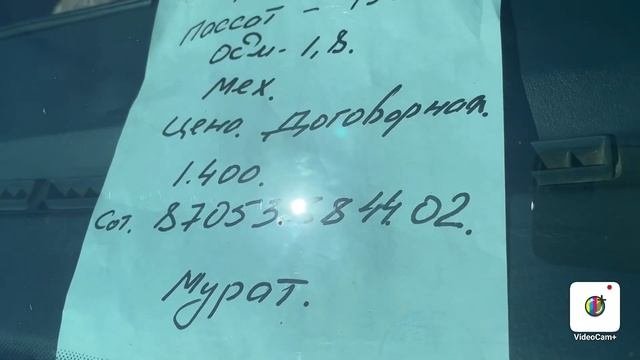 Пассат -
ОбЪм - 1,8.
мех.
Цена. Договорная.
1.400.
Сот. 87053 8 44 02.
Мурат.
VideoCam+